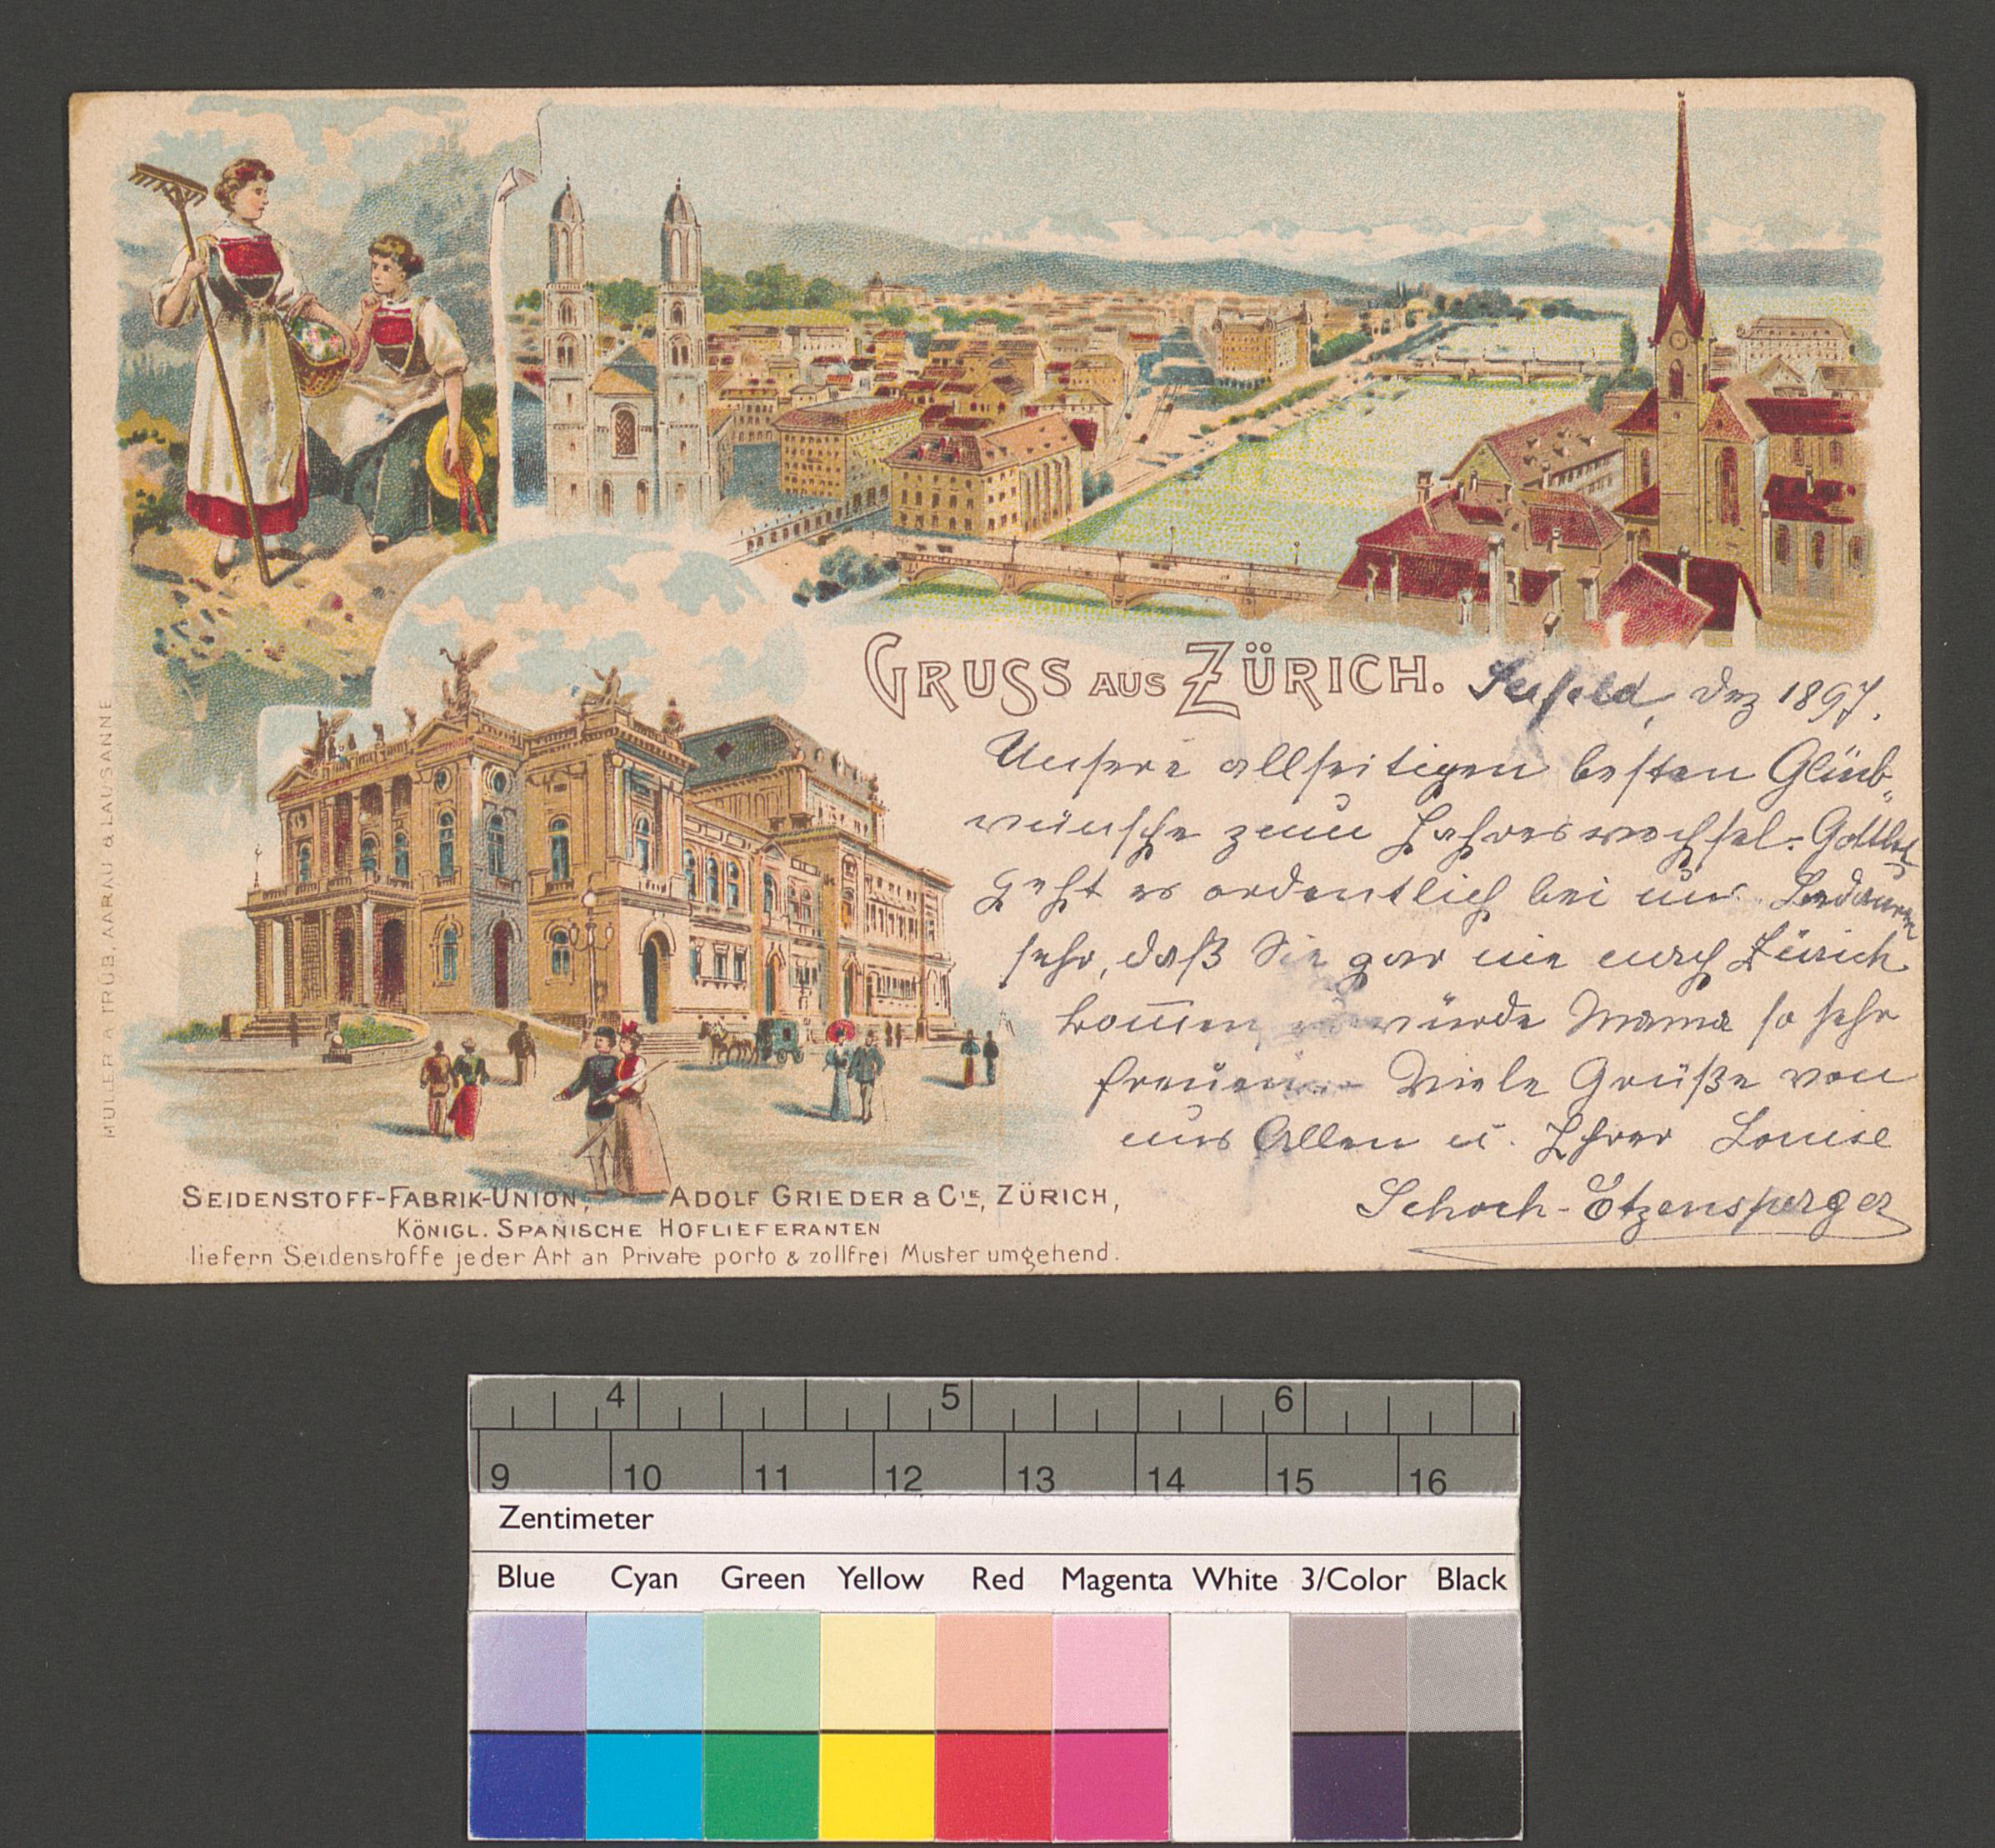 GRUSS AUS ZÜRICH.
Seefeld, Dez 1897.
Unsere allseitigen besten Glück„
wünsche zum Jahreswechsel. Gottlob
geht es ordentlich bei uns. Bedauern
sehr, daß Sie gar nie nach Zürich
kom̅en, würde Mama so sehr
freuen. Viele Grüße von
uns Allen u. Ihrer Louise
Schoch-Etzensperger
MÜLLER & TRÜB, AARAU & LAUSANNE
SEIDENSTOFF-FABRIK-UNION, ADOLF GRIEDER & CIE, ZÜRICH,
KÖNIGL. SPANISCHE HOFLIEFERANTEN
liefern Seidenstoffe jeder Art an Private porto & zollfrei Muster umgehend.
4 5 6
9 10 11 12 13 14 15 16
Zentimeter
Blue Cyan Green Yellow Red Magenta White 3/Color Black